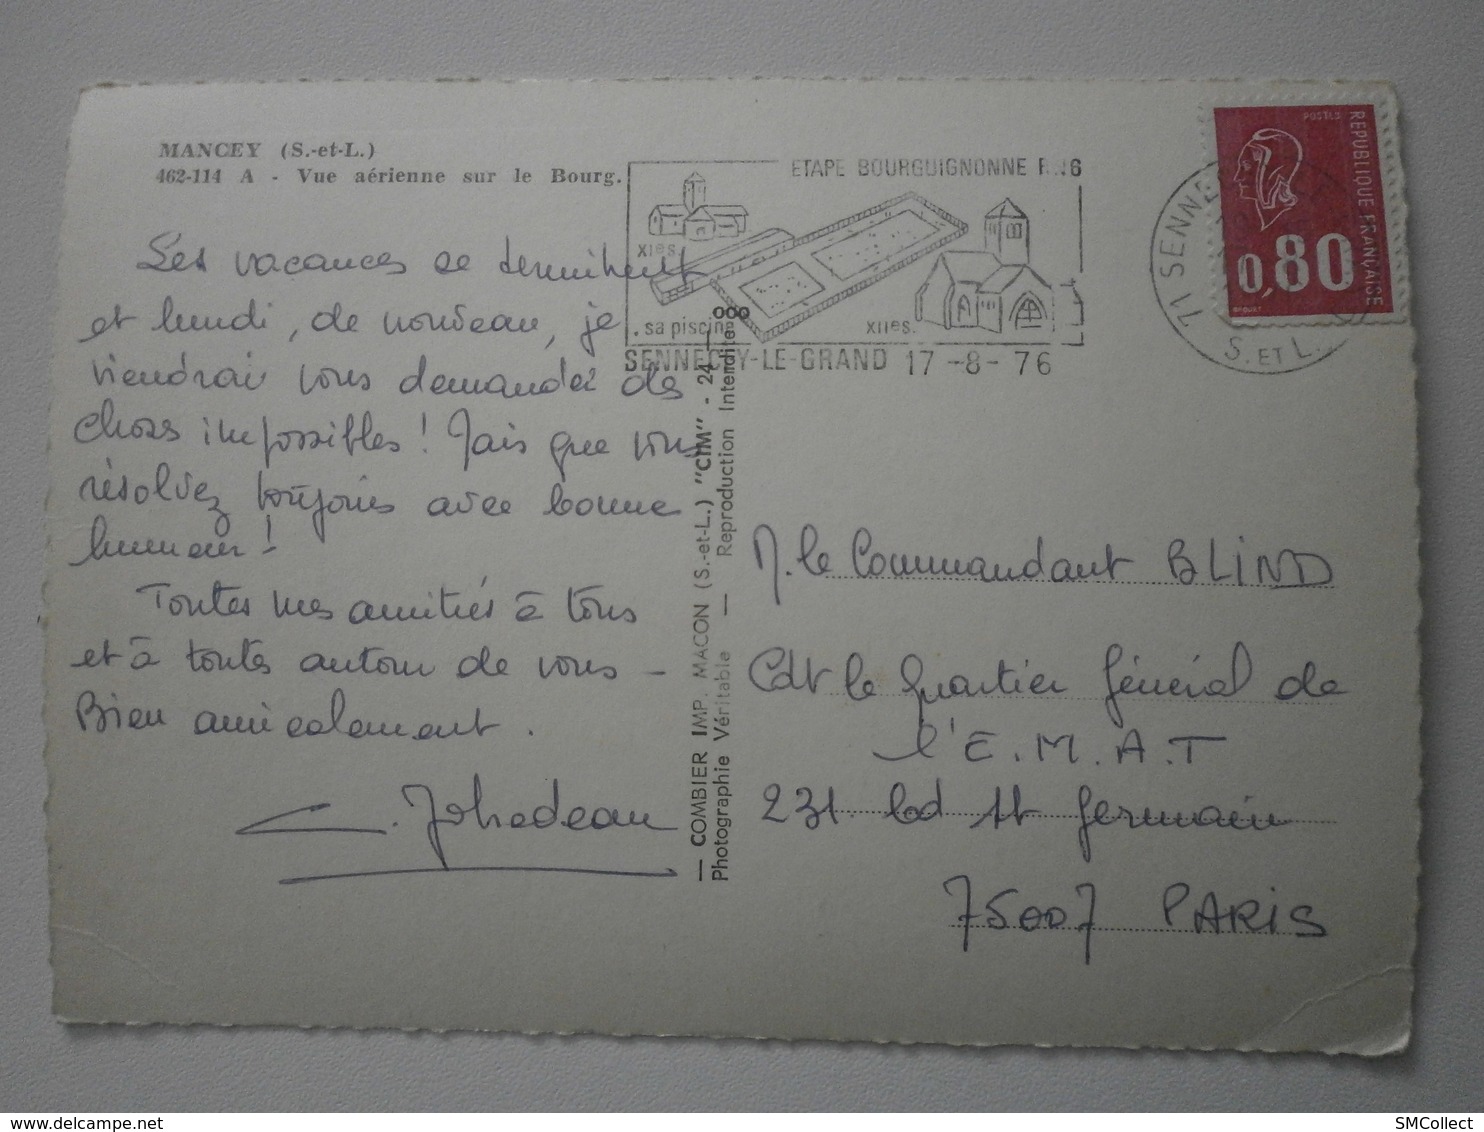 MANCEY (S.-et-L.)
462-114 A - Vue aérienne sur le Bourg.
ETAPE BOURGUIGNONNE RN6
XIes.
sa piscine
XIIes.
SENNECEY-LE-GRAND 17-8-76
71 SENNECEY
S. ET L.
POSTES
REPUBLIQUE FRANÇAISE
0,80
Les vacances se terminent
et lundi, de nouveau, je
viendrai vous demander des
choses impossibles! Mais que vous
résolvez toujours avec bonne
humeur!
Toutes mes amitiés à tous
et à toutes autour de vous -
Bien amicalement.
— COMBIER IMP. MACON (S.-et-L.) "CIM" - 24 —
Photographie Véritable — Reproduction Interdite
M. le Commandant BLIND
Cdt le Quartier Général de
l'E.M.A.T
231 bd St Germain
75007 PARIS
SMCollect